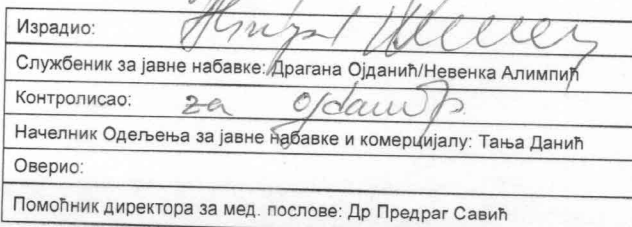 Израдио:
Службеник за јавне набавке: Драгана Ојданић/Невенка Алимпић
Контролисао: за
Начелник Одељења за јавне набавке и комерцијалу: Тања Данић
Оверио:
Помоћник директора за мед. послове: Др Предраг Савић